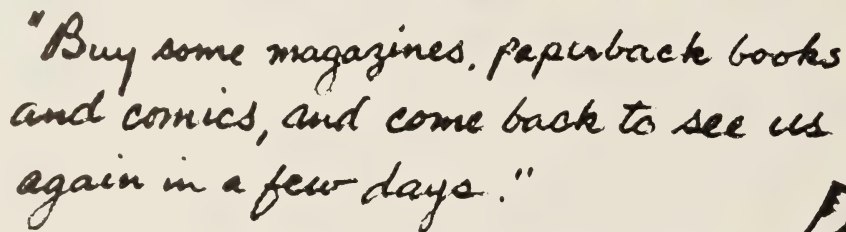 "Buy some magazines, paperback books
and comics, and come back to see us
again in a few days."